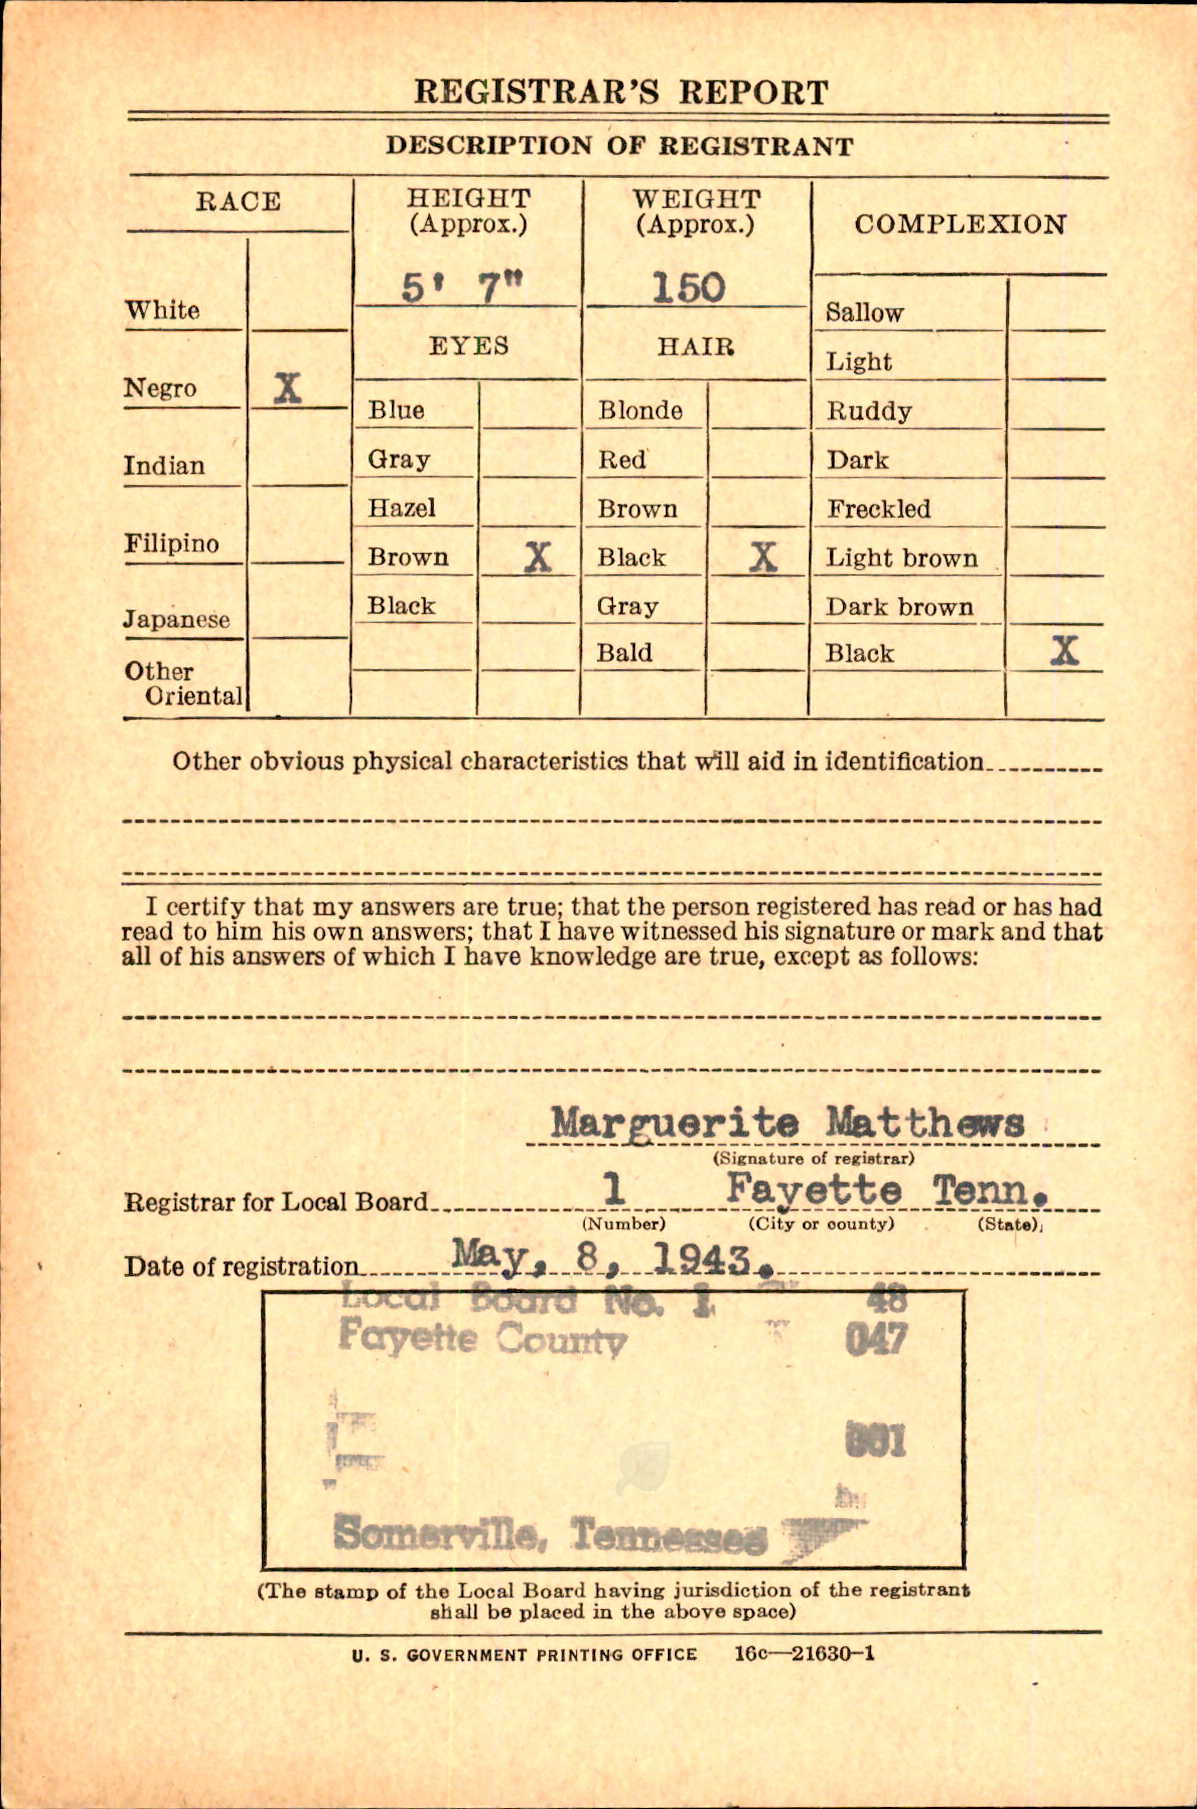 REGISTRAR'S REPORT
DESCRIPTION OF REGISTRANT
RACE
HEIGHT
(Approx.)
WEIGHT
(Approx.)
COMPLEXION
5' 7"
150
White
Sallow
EYES
HAIR
Light
Negro X
Blue
Blonde
Ruddy
Indian
Gray
Red
Dark
Hazel
Brown
Freckled
Filipino
Brown X
Black X
Light brown
Japanese
Black
Gray
Dark brown
Bald
Black X
Other
Oriental
Other obvious physical characteristics that will aid in identification
I certify that my answers are true; that the person registered has read or has had
read to him his own answers; that I have witnessed his signature or mark and that
all of his answers of which I have knowledge are true, except as follows:
Marguerite Matthews
(Signature of registrar)
Registrar for Local Board 1 Fayette Tenn.
(Number) (City or county) (State)
Date of registration May, 8, 1943.
Local Board No. 1 48
Fayette County 047
001
Somerville, Tennessee
(The stamp of the Local Board having jurisdiction of the registrant
shall be placed in the above space)
U. S. GOVERNMENT PRINTING OFFICE 16c—21630-1